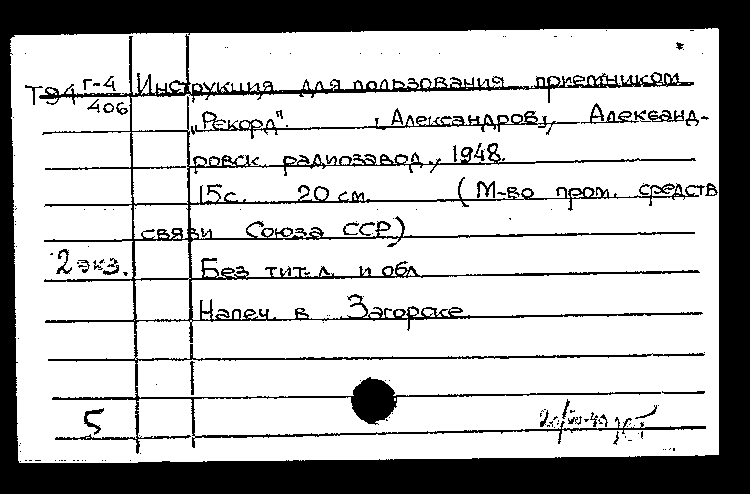 Т94 Г-4 Инструкция для пользования приемником
406
„Рекорд". [Александров], Александ-
ровск. радиозавод, 1948.
15 с. 20 см. (М-во пром. средств
связи Союза ССР)
2 экз. Без тит. л. и обл.
Напеч. в Загорске
5